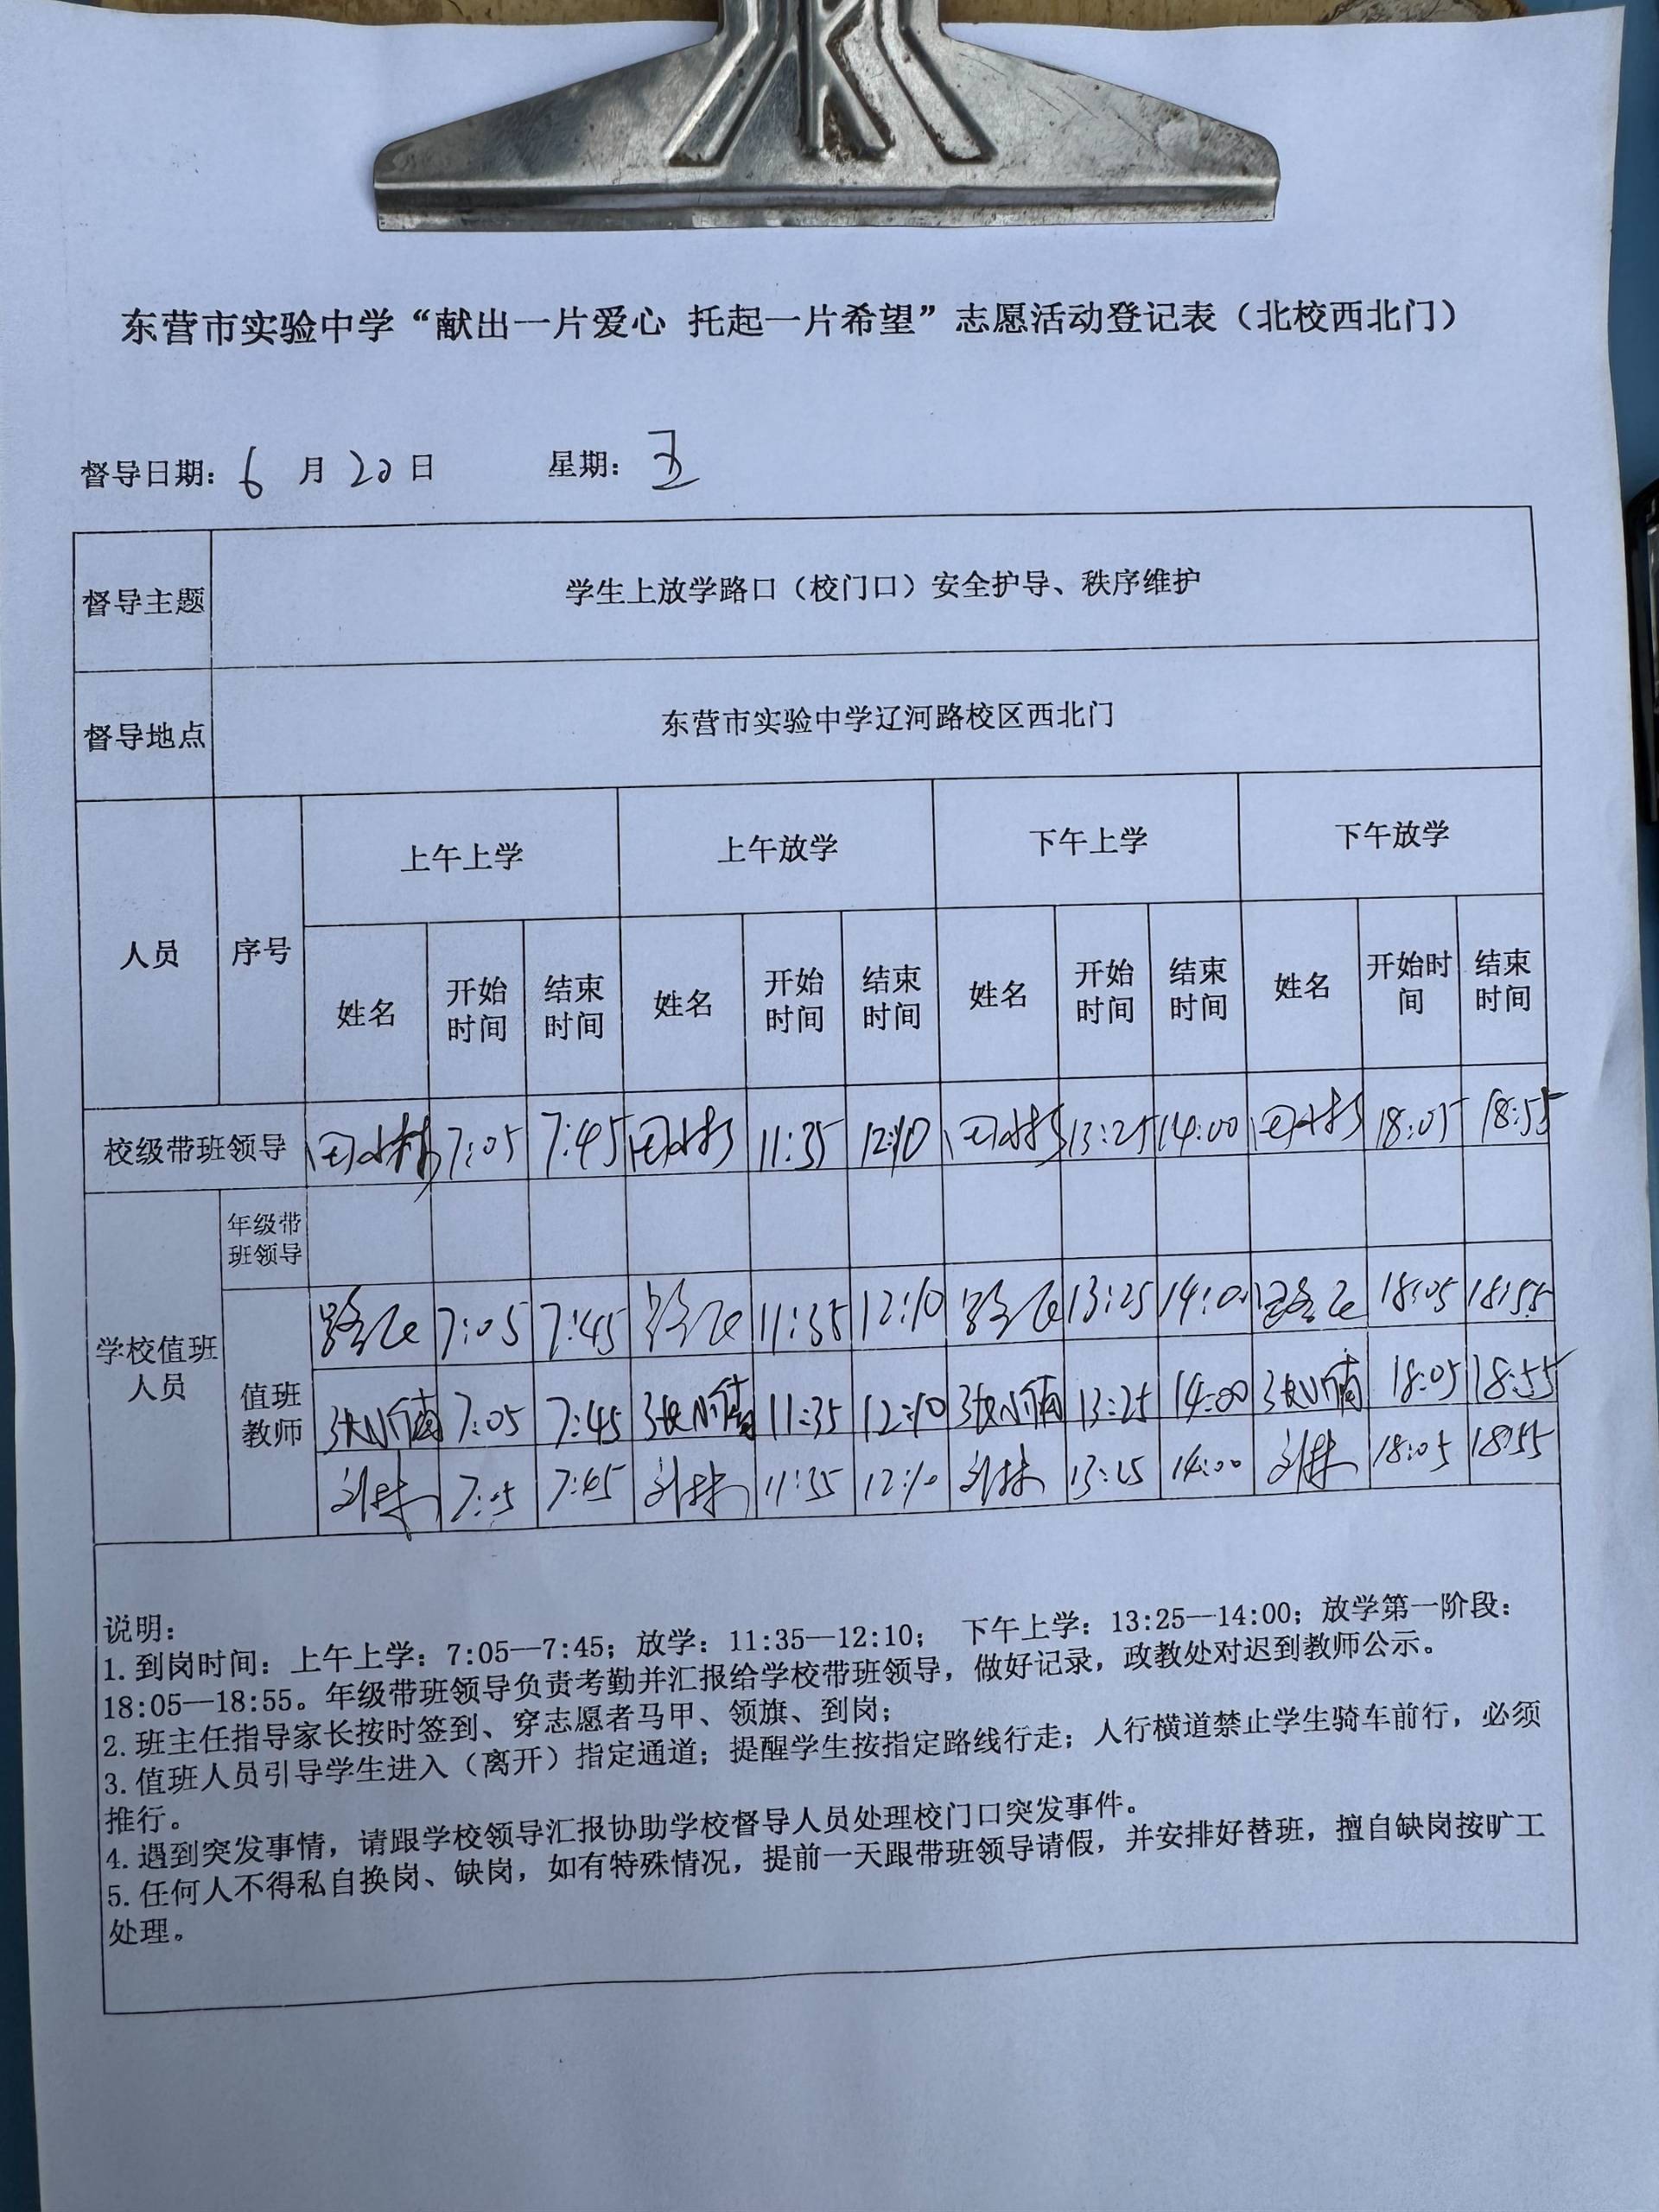 东营市实验中学“献出一片爱心 托起一片希望”志愿活动登记表（北校西北门）
督导日期：6 月 20 日 星期：五
督导主题 学生上放学路口（校门口）安全护导、秩序维护
督导地点 东营市实验中学辽河路校区西北门
人员 序号 上午上学 上午放学 下午上学 下午放学
姓名 开始时间 结束时间 姓名 开始时间 结束时间 姓名 开始时间 结束时间 姓名 开始时间 结束时间
校级带班领导 7:05 7:45 11:35 12:10 13:25 14:00 18:05 18:55
学校值班人员 年级带班领导
值班教师 7:05 7:45 11:35 12:10 13:25 14:00 18:05 18:55
7:05 7:45 11:35 12:10 13:25 14:00 18:05 18:55
刘林 7:05 7:45 刘林 11:35 12:10 刘林 13:25 14:00 刘林 18:05 18:55
说明：
1.到岗时间：上午上学：7:05—7:45；放学：11:35—12:10； 下午上学：13:25—14:00；放学第一阶段：
18:05—18:55。年级带班领导负责考勤并汇报给学校带班领导，做好记录，政教处对迟到教师公示。
2.班主任指导家长按时签到、穿志愿者马甲、领旗、到岗；
3.值班人员引导学生进入（离开）指定通道；提醒学生按指定路线行走；人行横道禁止学生骑车前行，必须
推行。
4.遇到突发事情，请跟学校领导汇报协助学校督导人员处理校门口突发事件。
5.任何人不得私自换岗、缺岗，如有特殊情况，提前一天跟带班领导请假，并安排好替班，擅自缺岗按旷工
处理。